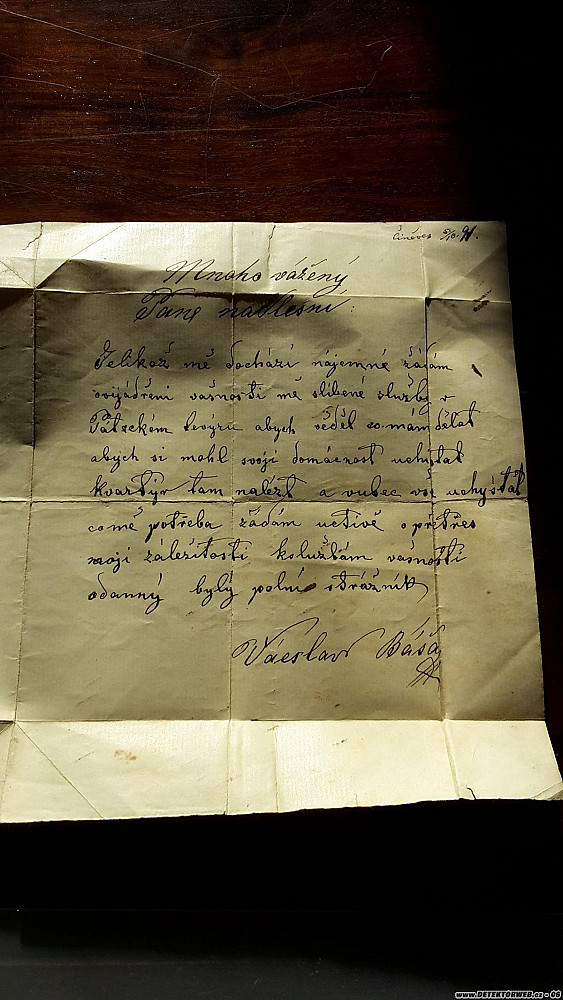 Činěves 5/10. 91.
Mnoho vážený
Pane nadlesní:
Jelikož mě dochází nájemné žádám
vyjádření vašnosti mě slíbené služby v
Pátzckém revýru abych věděl co mám dělat
abych si mohl svojí domácnost uchystat
kvartýr tam nalézt a vubec vše uchystat
co mě potřeba žádám uctivě o přetřes
mojí záležitosti k službám vašnosti
odanný bylý polní strážník
Václav Báša
www.DETEKTORWEB.cz - 09